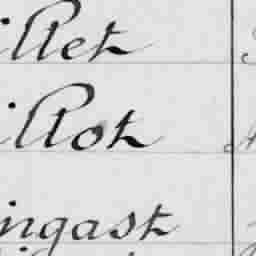 illet
illot
ingast